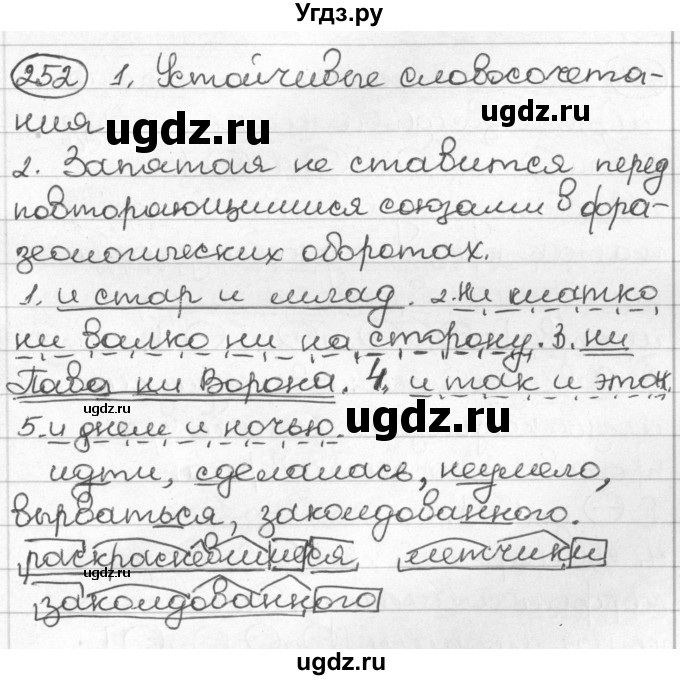 Угдз.ру
252 1. Устойчивые словосочета-
ния
ugdz.ru ugdz.ru
2. Запятая не ставится перед
повторяющимися союзами в фра-
зеологических оборотах.
1. и стар и млад. 2. Ни шатко
ни валко ни на сторону. 3. ни
Пава ни Ворона. 4. и так и этак
ugdz.ru ugdz.ru
5. и днем и ночью.
идти, сделалась, неумело,
вырваться, заколдованного.
раскрасневшиеся летчики
ugdz.ru
заколдованного
ugdz.ru
ugdz.ru